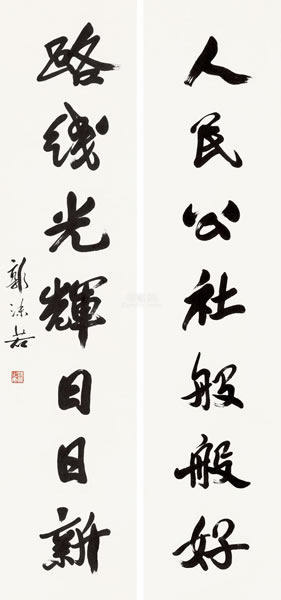 人民公社般般好
路线光輝日日新
郭沫若